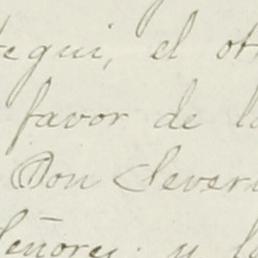 tegui, el ot
favor de l
Don Severi
Señores. y l